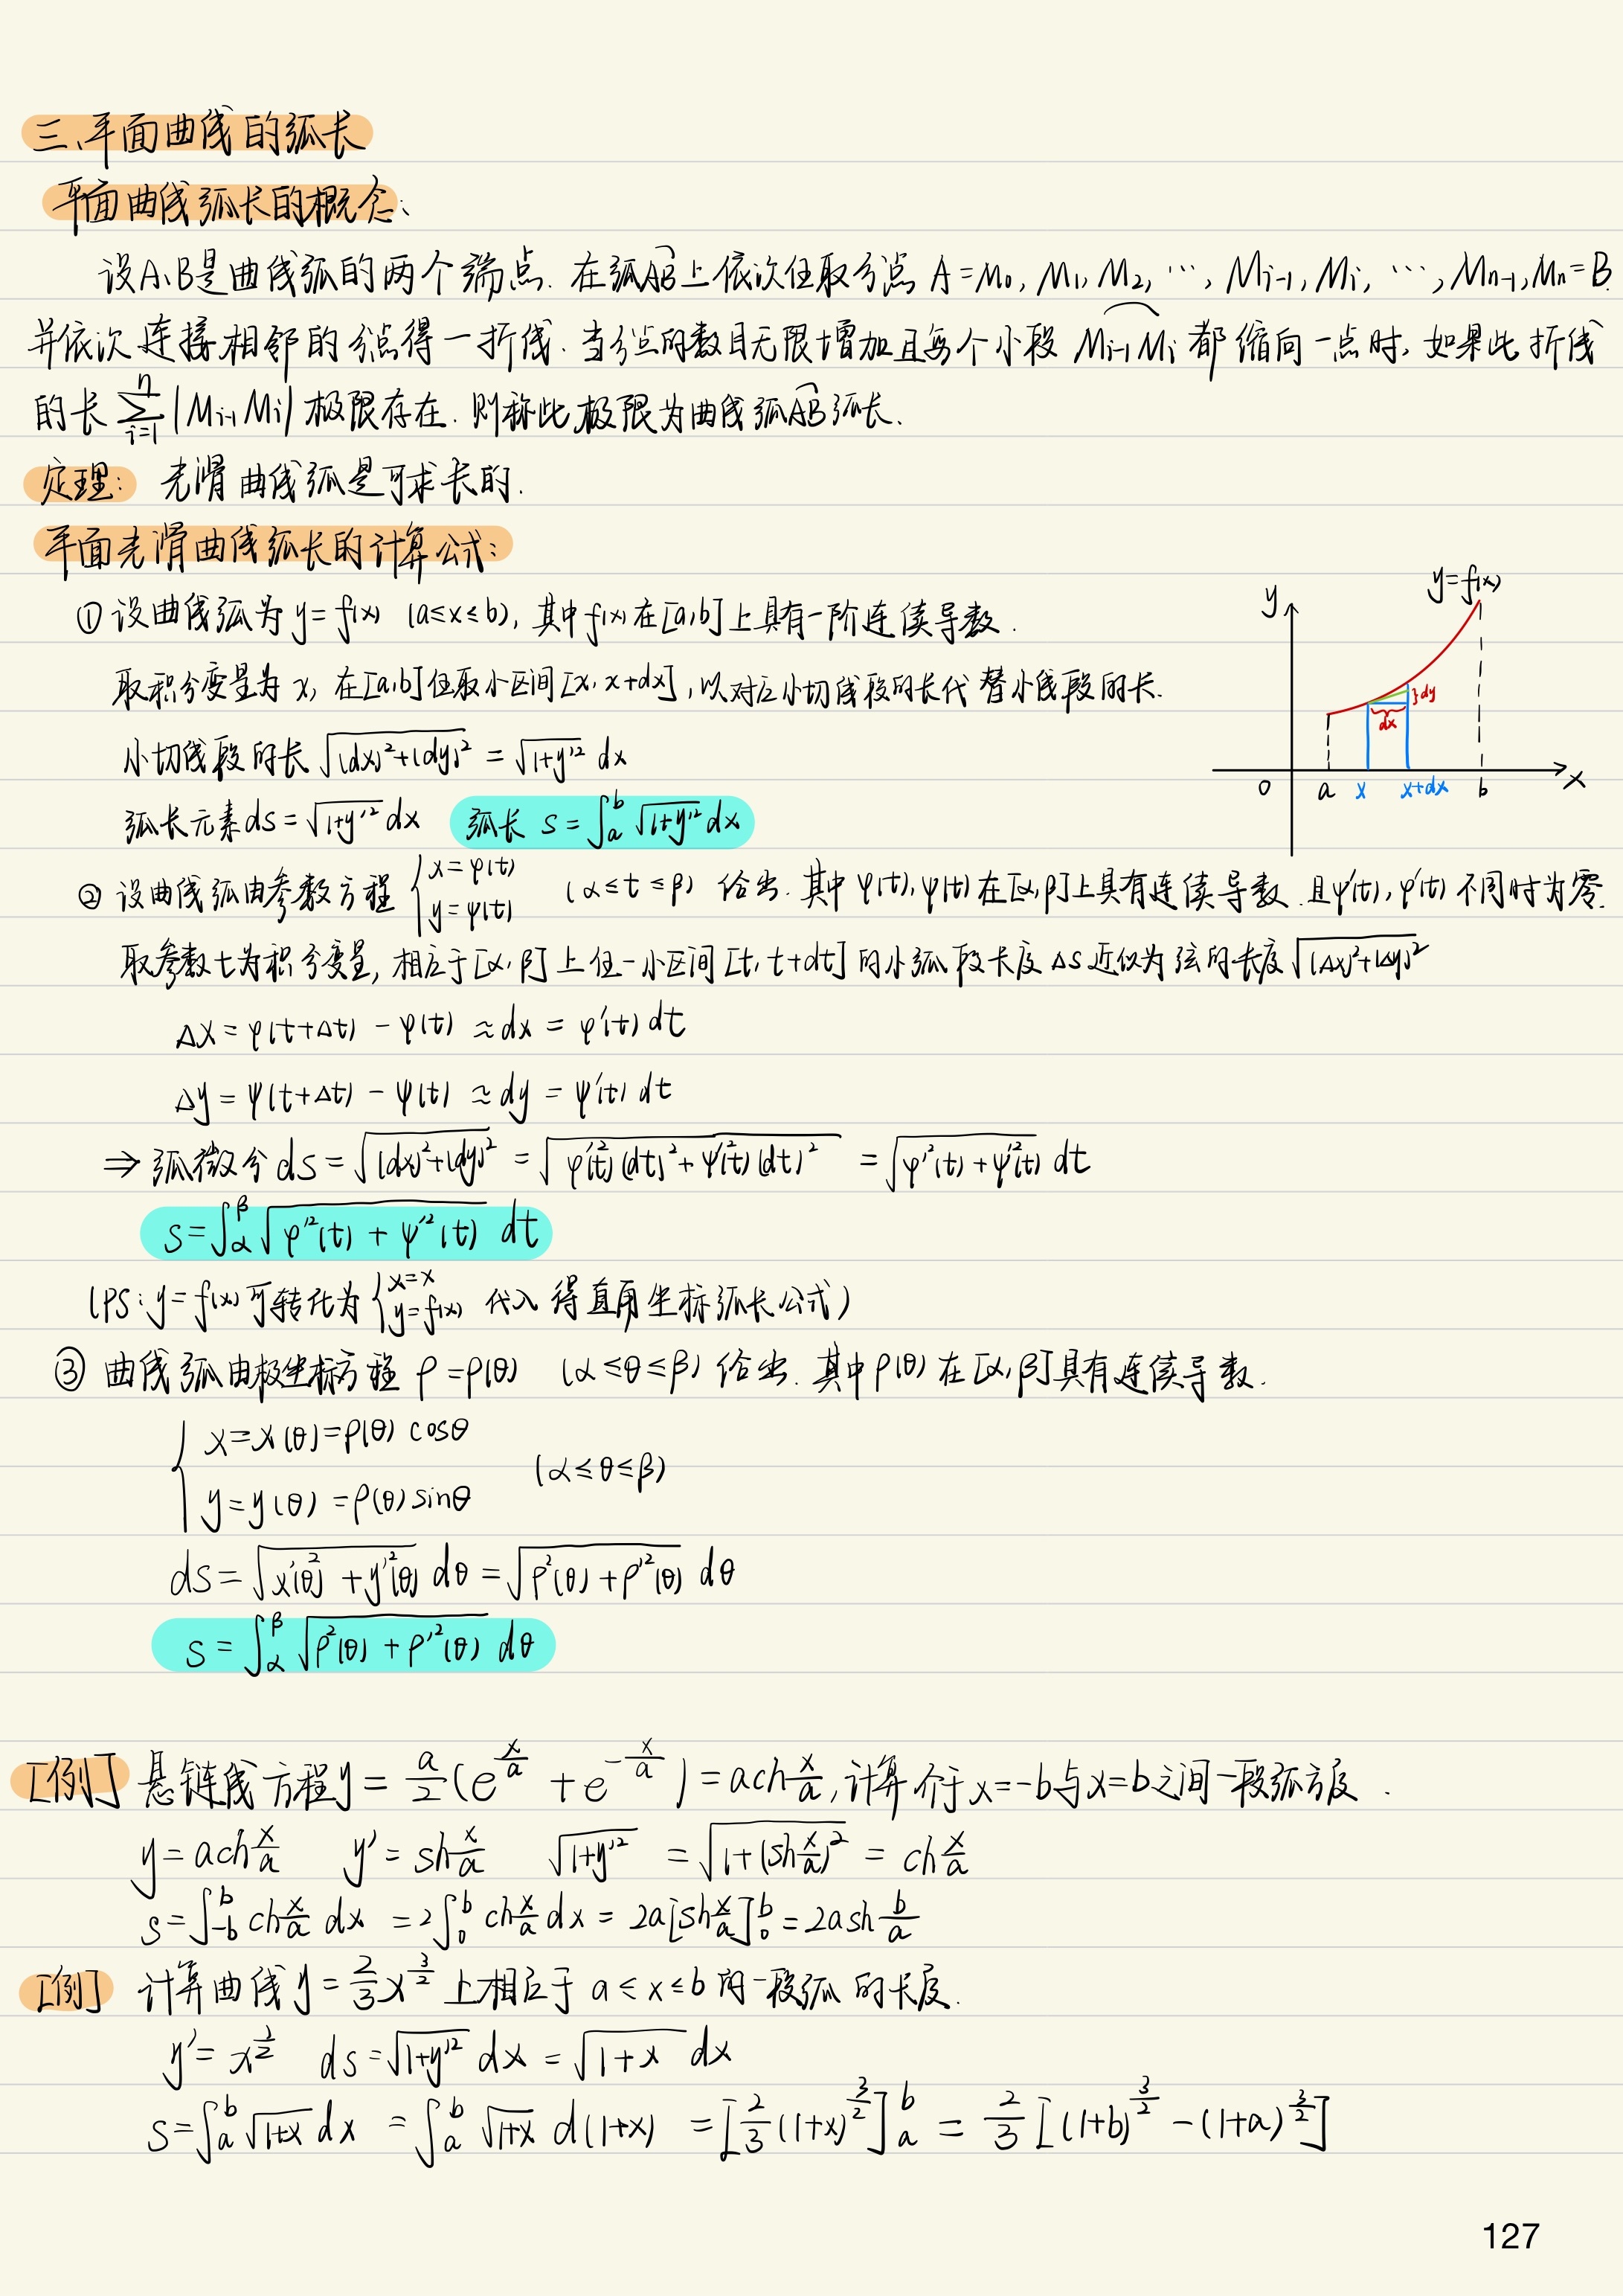 三、平面曲线的弧长
平面曲线弧长的概念:
设A、B是曲线弧的两个端点. 在弧AB上依次任取分点 A=M₀, M₁, M₂, …, Mᵢ₋₁, Mᵢ, …, Mₙ₋₁, Mₙ=B.
并依次连接相邻的分点得一折线. 当分点的数目无限增加且每个小段 Mᵢ₋₁Mᵢ 都缩向一点时, 如果此折线
的长 ∑ᵢ₌₁ⁿ |Mᵢ₋₁Mᵢ| 极限存在. 则称此极限为曲线弧AB弧长.
定理: 光滑曲线弧是可求长的.
平面光滑曲线弧长的计算公式:
① 设曲线弧为 y=f(x) (a≤x≤b), 其中f(x)在[a,b]上具有一阶连续导数.
取积分变量为 x, 在[a,b]任取小区间[x, x+dx], 以对应小切线段的长代替小线段的长.
小切线段的长 √((dx)²+(dy)²) = √(1+y'²) dx
弧长元素 ds = √(1+y'²) dx 弧长 s = ∫ₐᵇ √(1+y'²) dx
y
y=f(x)
dy
dx
0 a x x+dx b x
② 设曲线弧由参数方程 { x=φ(t) y=ψ(t) (α≤t≤β) 给出. 其中 φ(t), ψ(t) 在[α,β]上具有连续导数. 且φ'(t), φ'(t) 不同时为零.
取参数t为积分变量, 相应于[α,β]上任一小区间[t, t+dt]的小弧段长度 Δs 近似为弦的长度 √((Δx)²+(Δy)²)
Δx = φ(t+Δt) - φ(t) ≈ dx = φ'(t) dt
Δy = ψ(t+Δt) - ψ(t) ≈ dy = ψ'(t) dt
⇒ 弧微分 ds = √((dx)²+(dy)²) = √(φ'²(t)(dt)²+ψ'²(t)(dt)²) = √(φ'²(t)+ψ'²(t)) dt
s = ∫_α^β √(φ'²(t) + ψ'²(t)) dt
(PS: y=f(x)可转化为 { x=x y=f(x) 代入得直角坐标弧长公式)
③ 曲线弧由极坐标方程 ρ=ρ(θ) (α≤θ≤β) 给出. 其中ρ(θ) 在[α,β]具有连续导数.
{ x=x(θ)=ρ(θ) cosθ
y=y(θ)=ρ(θ) sinθ (α≤θ≤β)
ds = √(x'(θ)²+y'²(θ)) dθ = √(ρ²(θ)+ρ'²(θ)) dθ
s = ∫_α^β √(ρ²(θ) + ρ'²(θ)) dθ
[例] 悬链线方程y = a/2 (e^(x/a) + e^(-x/a)) = a ch x/a, 计算介于x=-b与x=b之间一段弧方度.
y = a ch x/a y' = sh x/a √(1+y'²) = √(1+(sh x/a)²) = ch x/a
s = ∫₋ᵇᵇ ch x/a dx = 2∫₀ᵇ ch x/a dx = 2a[sh x/a]₀ᵇ = 2a sh b/a
[例] 计算曲线 y = 2/3 x^(3/2) 上相应于 a≤x≤b 的一段弧的长度.
y' = x^(1/2) ds = √(1+y'²) dx = √(1+x) dx
s = ∫ₐᵇ √(1+x) dx = ∫ₐᵇ √(1+x) d(1+x) = [2/3 (1+x)^(3/2)]ₐᵇ = 2/3 [(1+b)^(3/2) - (1+a)^(3/2)]
127